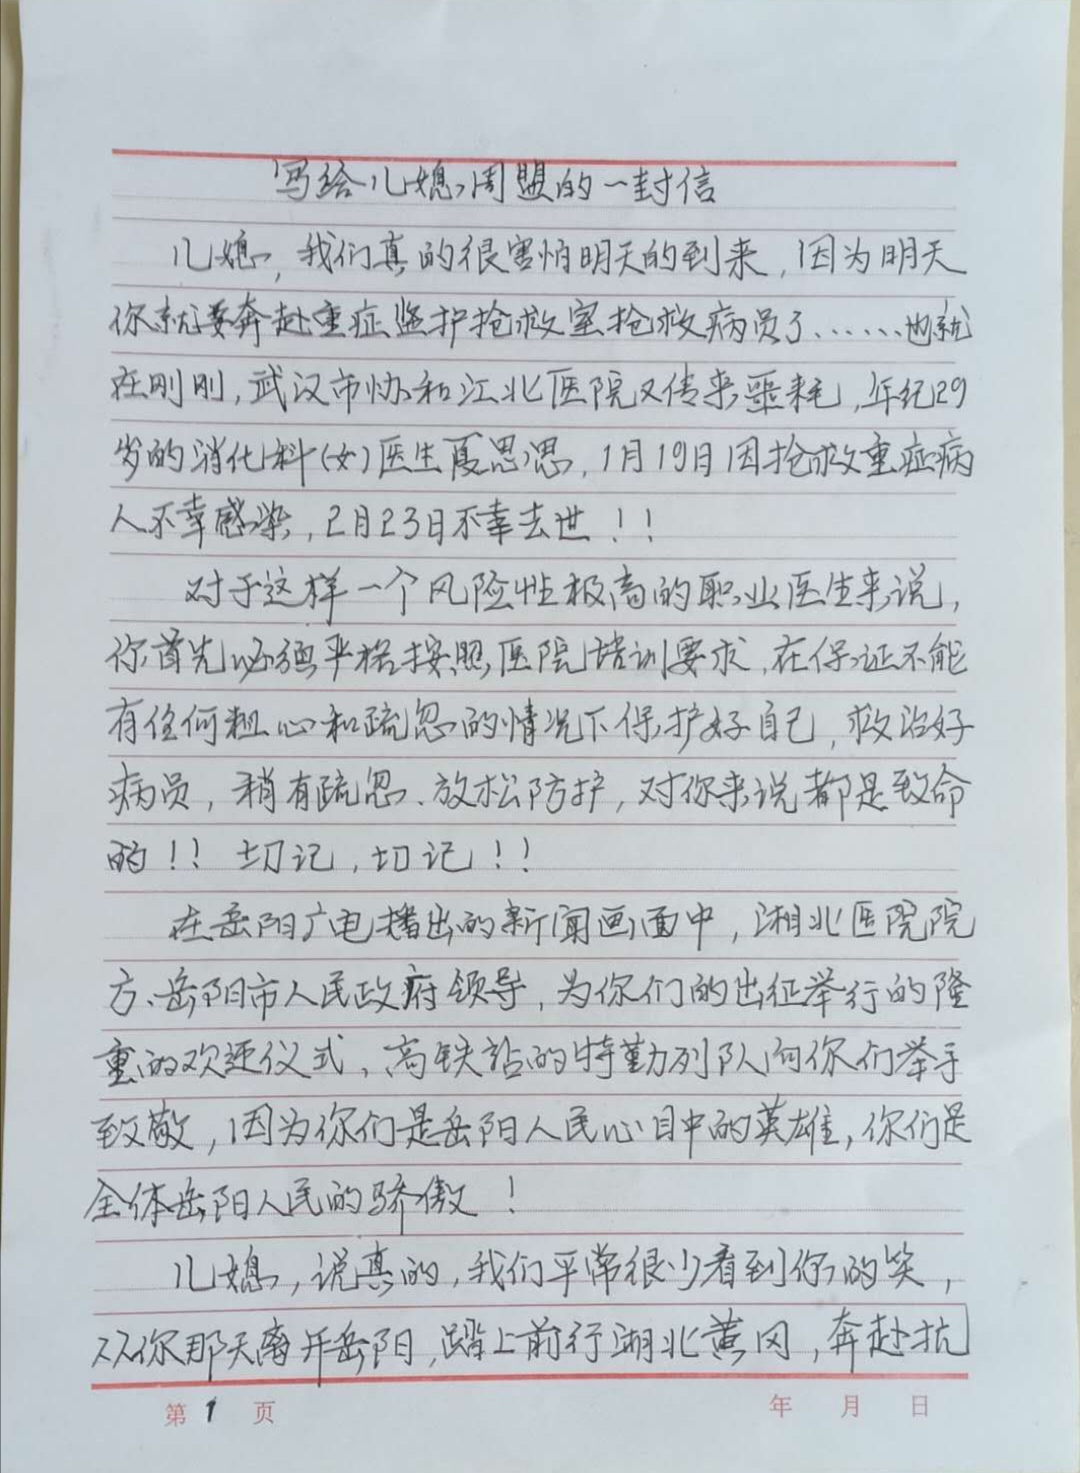 写给儿媳周盟的一封信
儿媳，我们真的很害怕明天的到来，因为明天
你就要奔赴重症监护抢救室抢救病员了……也就
在刚刚，武汉市协和江北医院又传来噩耗，年纪29
岁的消化科（女）医生夏思思，1月19日因抢救重症病
人不幸感染，2月23日不幸去世！！
对于这样一个风险性极高的职业医生来说，
你首先必须严格按照医院培训要求，在保证不能
有任何粗心和疏忽的情况下保护好自己，救治好
病员，稍有疏忽、放松防护，对你来说都是致命
的！！切记，切记！！
在岳阳广电播出的新闻画面中，湘北医院院
方、岳阳市人民政府领导，为你们的出征举行的隆
重的欢迎仪式、高铁站的特勤列队向你们举手
致敬，因为你们是岳阳人民心目中的英雄，你们是
全体岳阳人民的骄傲！
儿媳，说真的，我们平常很少看到你的笑，
从你那天离开岳阳，踏上前行湖北黄冈，奔赴抗
第1页 年 月 日